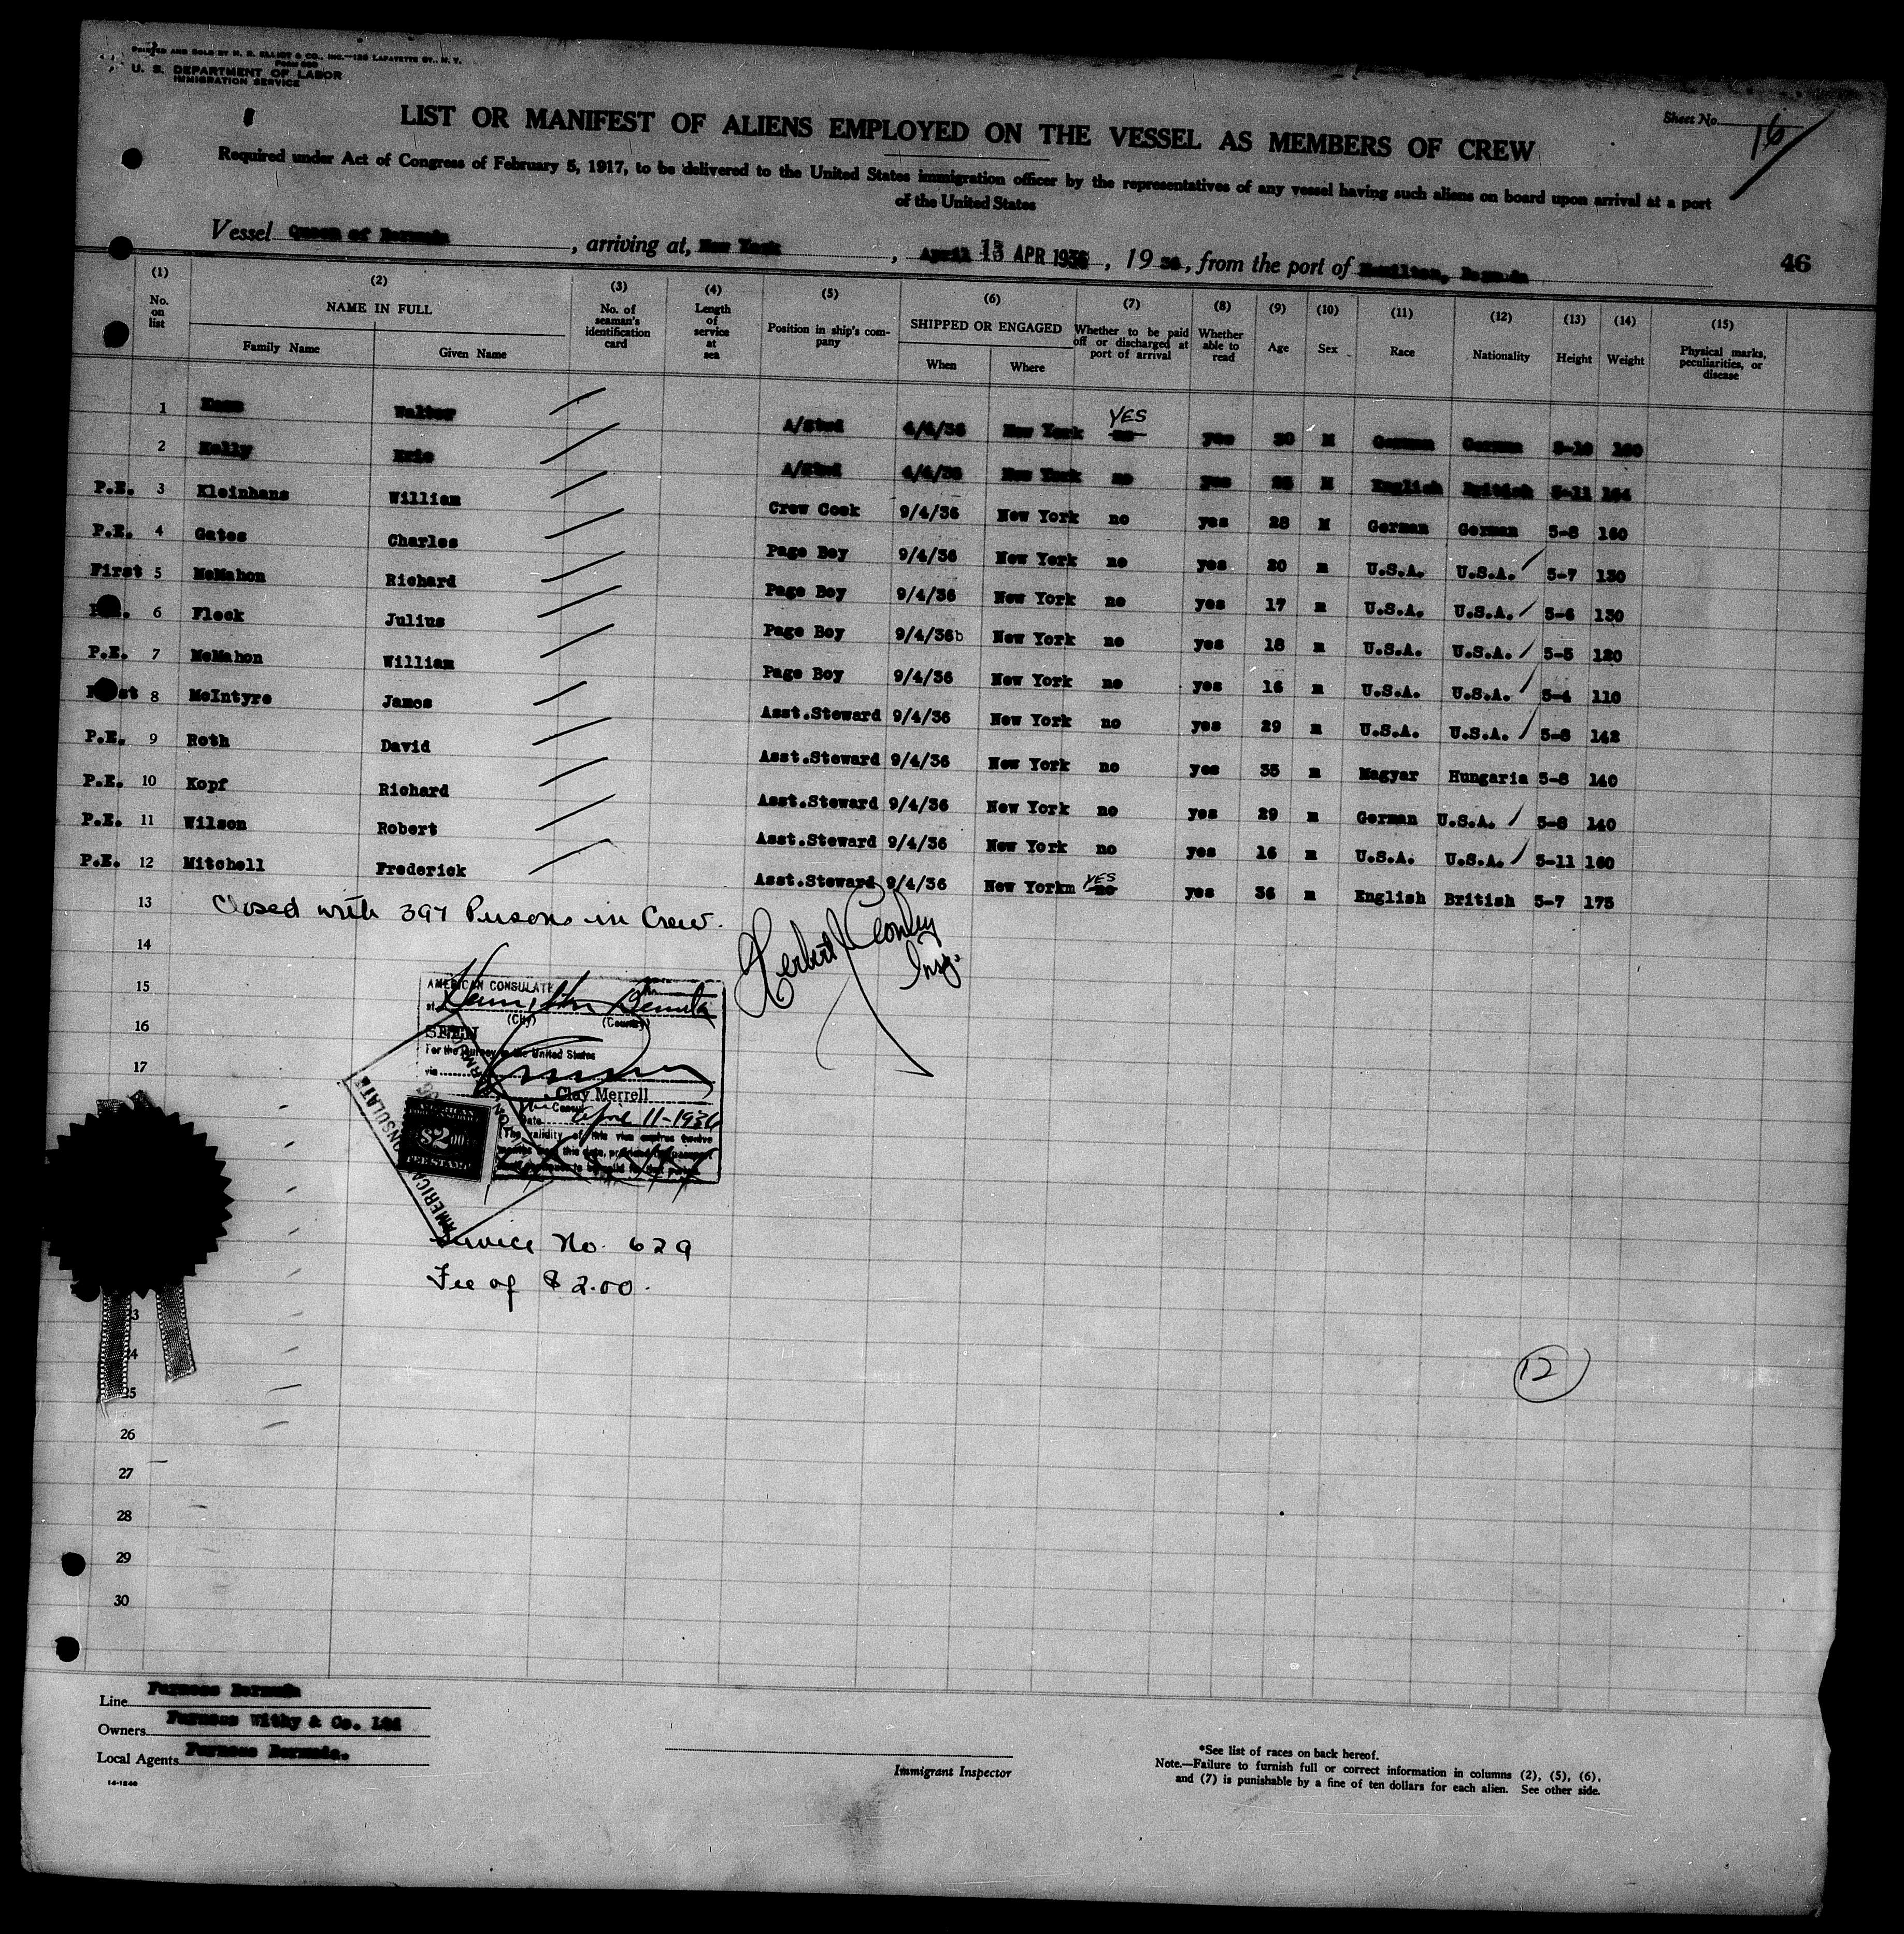 PRINTED AND SOLD BY H. R. ELLIOT & CO., INC.—120 LAFAYETTE ST., N. Y.
U. S. DEPARTMENT OF LABOR
IMMIGRATION SERVICE
Sheet No. 16
LIST OR MANIFEST OF ALIENS EMPLOYED ON THE VESSEL AS MEMBERS OF CREW
Required under Act of Congress of February 5, 1917, to be delivered to the United States immigration officer by the representatives of any vessel having such aliens on board upon arrival at a port
of the United States
Vessel Queen of Bermuda, arriving at, New York, April 13 APR 1936, 19 36, from the port of Hamilton, Bermuda 46
(1) No. on list (2) NAME IN FULL Family Name Given Name (3) No. of seaman's identification card (4) Length of service at sea (5) Position in ship's company (6) SHIPPED OR ENGAGED When Where (7) Whether to be paid off or discharged at port of arrival (8) Whether able to read (9) Age (10) Sex (11) Race (12) Nationality (13) Height (14) Weight (15) Physical marks, peculiarities, or disease
1 Walter A/Stwd 4/4/36 New York no YES yes 30 M German German 5-10 160
2 Kelly Eric A/Stwd 4/4/36 New York no yes M English British 5-11 164
P.E. 3 Kleinhans William Crew Cook 9/4/36 New York no yes 28 M German German 5-8 160
P.E. 4 Gates Charles Page Boy 9/4/36 New York no yes 20 m U.S.A. U.S.A. 5-7 130
First 5 McMahon Richard Page Boy 9/4/36 New York no yes 17 m U.S.A. U.S.A. 5-6 130
P.E. 6 Fleck Julius Page Boy 9/4/36b New York no yes 18 m U.S.A. U.S.A. 5-5 120
P.E. 7 McMahon William Page Boy 9/4/36 New York no yes 16 m U.S.A. U.S.A. 5-4 110
First 8 McIntyre James Asst.Steward 9/4/36 New York no yes 29 m U.S.A. U.S.A. 5-8 142
P.E. 9 Roth David Asst.Steward 9/4/36 New York no yes 35 m Magyar Hungaria 5-8 140
P.E. 10 Kopf Richard Asst.Steward 9/4/36 New York no yes 29 m German U.S.A. 5-8 140
P.E. 11 Wilson Robert Asst.Steward 9/4/36 New York no yes 16 m U.S.A. U.S.A. 5-11 160
P.E. 12 Mitchell Frederick Asst.Steward 9/4/36 New Yorkm no YES yes 36 m English British 5-7 175
13 Closed with 397 Persons in Crew.
Herbert Conley
Insp.
14
15
16
17
AMERICAN CONSULATE
at Hamilton Bermuda
(City) (Country)
SEEN
For the journey to the United States
via
Clay Merrell
Vice Consul
Date April 11-1936
(The validity of this visa expires twelve
months from this date, provided the passport
continues to be valid for that period
AMERICAN CONSULATE
$2.00
FEE STAMP
Service No. 629
Fee of $2.00.
23
24
12
25
26
27
28
29
30
Line Furness Bermuda
Owners Furness Withy & Co. Ltd
Local Agents Furness Bermuda.
14-1240
Immigrant Inspector
*See list of races on back hereof.
Note.—Failure to furnish full or correct information in columns (2), (5), (6),
and (7) is punishable by a fine of ten dollars for each alien. See other side.